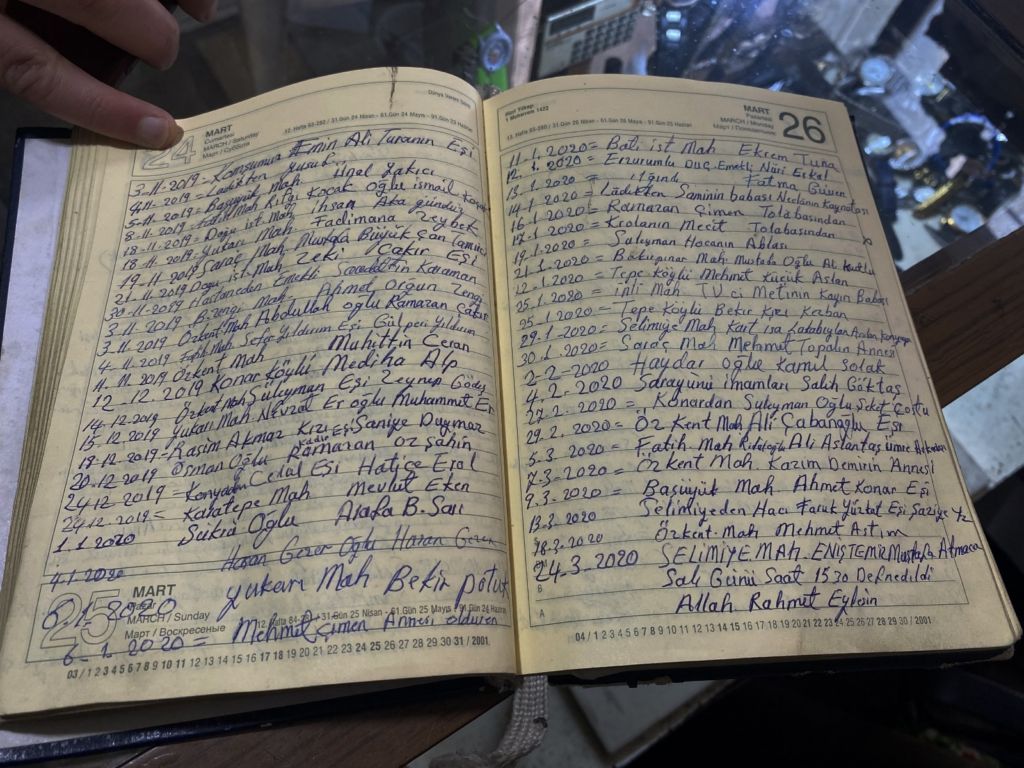 24
MART
Cumartesi
MARCH / Saturday
Март / Суббота
12. Hafta 83-282 / 31.Gün 24 Nisan - 61.Gün 24 Mayıs - 91.Gün 24 Haziran
3-11-2019 - Komşumuz Emin Ali Turanın Eşi
4-11-2019 = Ladikten Yusuf Ünal Yakıcı
5-11-2019 = Başüyük Mah. Koçak Oğlu ismail
8-11-2019 = Fatih Mah ihsan Aka gündüz
18-11-2019 = Doğu ist Mah Fadimana Zeybek
18-11-2019 = Yukarı Mah Mustafa Büyük Çan
19-11-2019 Saraç Mah Zeki Çakır Eşi
21-11-2019 Doğu ist Mah Karaman
30-11-2019 Hastaneden Emekli Ahmet Orgun
3-11-2019 Mah Abdullah oğlu Ramazan Çakır
4-11-2019 Özkent Mah Gülperi Yıldırım
4-11-2019 Fatih Mah Sefer Yıldırım Eşi
11-11-2019 Özkent Mah Muhittin Ceran
12-12-2019 Konar Köylü Mediha Alp
14-12-2019 Özkent Mah Süleyman Eşi Zeynep
15-12-2019 Yukarı Mah Nevzat Er oğlu Muhammet Er
19-12-2019 - Rasim Akmaz Kızı Saniye Duymaz
20-12-2019 Osman Oğlu Ramazan Öz şahin
24-12-2019 = Konyadan Celal Eşi Hatiçe Eral
24-12-2019 = Karatepe Mah Mevlut Eken
1-1-2020 Şükrü Oğlu Arafa B. Sarı
4-1-2020 Hasan Gezer Oğlu Hasan Gezer
25
MART
Pazar
MARCH / Sunday
Март / Воскресенье
12. Hafta 84-281 / 31.Gün 25 Nisan - 61.Gün 25 Mayıs - 91.Gün 24 Haziran
6-1-2020 Yukarı Mah Bekir
6-1-2020 = Mehmet Çimen Annesi
03 / 1 2 3 4 5 6 7 8 9 10 11 12 13 14 15 16 17 18 19 20 21 22 23 24 25 26 27 28 29 30 31 / 2001
1 Muharrem 1422
MART
Pazartesi
MARCH / Monday
26
13. Hafta 85-280 / 31.Gün 26 Nisan - 61.Gün 26 Mayıs - 91.Gün 25 Haziran
11-1-2020 = Batı ist Mah Ekrem Tuna
12-1-2020 = Erzurumlu Emekli Nuri Erkal
13-1-2020 = ılğında Fatma Güven
14-1-2020 = Ladikten Saminin babası Neclanın Kaynatası
16-1-2020 = Ramazan Çimen Tolabasından
17-1-2020 = Mecit Tolabasından
19-1-2020 = Süleyman Hocanın Ablası
21-1-2020 = Başkupınar Mah. Mustafa Oğlu
12-1-2020 = Tepe Köylü Mehmet Küçük Aslan
25-1-2020 = inli Mah TV ci Metinin Kayın Babası
25-1-2020 = Tepe Köylü Bekir Kızı
29-1-2020 = Selimiye Mah Kart isa
30-1-2020 = Saraç Mah Mehmet Topalın Annesi
2-2-2020 Haydar oğlu Kamil Solak
4-2-2020 Sarayönü imamları Salih Göktaş
27-2-2020 = Konardan Süleyman Oğlu
29-2-2020 = Öz Kent Mah Ali Çabanoğlu Eşi
5-3-2020 = Fatih Mah Ali Aslantaş
7-3-2020 = Özkent Mah. Kazım Demirin Annesi
9-3-2020 = Başüyük Mah. Ahmet Konar Eşi
13-3-2020 Selimiyeden Hacı Faruk Eşi Saziye
18-3-2020 Özkent Mah Mehmet Astım
24-3-2020 SELİMİYE MAH. ENİSTEMİZ Mustafa Atmaca
Salı Günü Saat 15 30 Defnedildi
Allah Rahmet Eylesin
04 / 1 2 3 4 5 6 7 8 9 10 11 12 13 14 15 16 17 18 19 20 21 22 23 24 25 26 27 28 29 30 / 2001